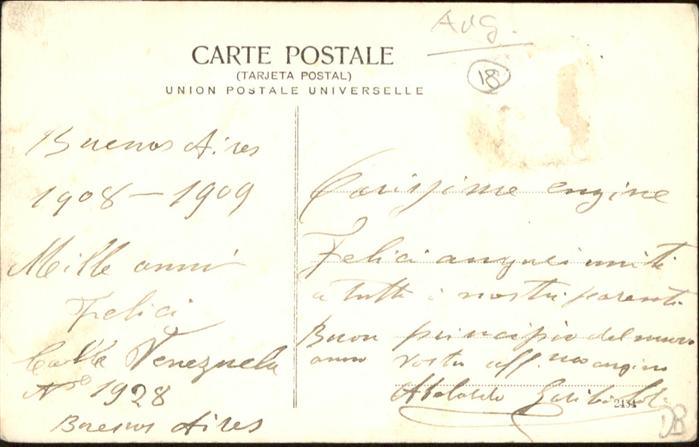 AdG.
18
CARTE POSTALE
(TARJETA POSTAL)
UNION POSTALE UNIVERSELLE
Buenos Aires
1908–1909
Mille anni
Felici
Calle Venezuela
Nº 1928
Buenos Aires
Carissime cugine
Felici auguri uniti
a tutti i nostri parenti
Buon principio del nuovo
anno vostro aff. cugino
Garibaldi
2434
DB